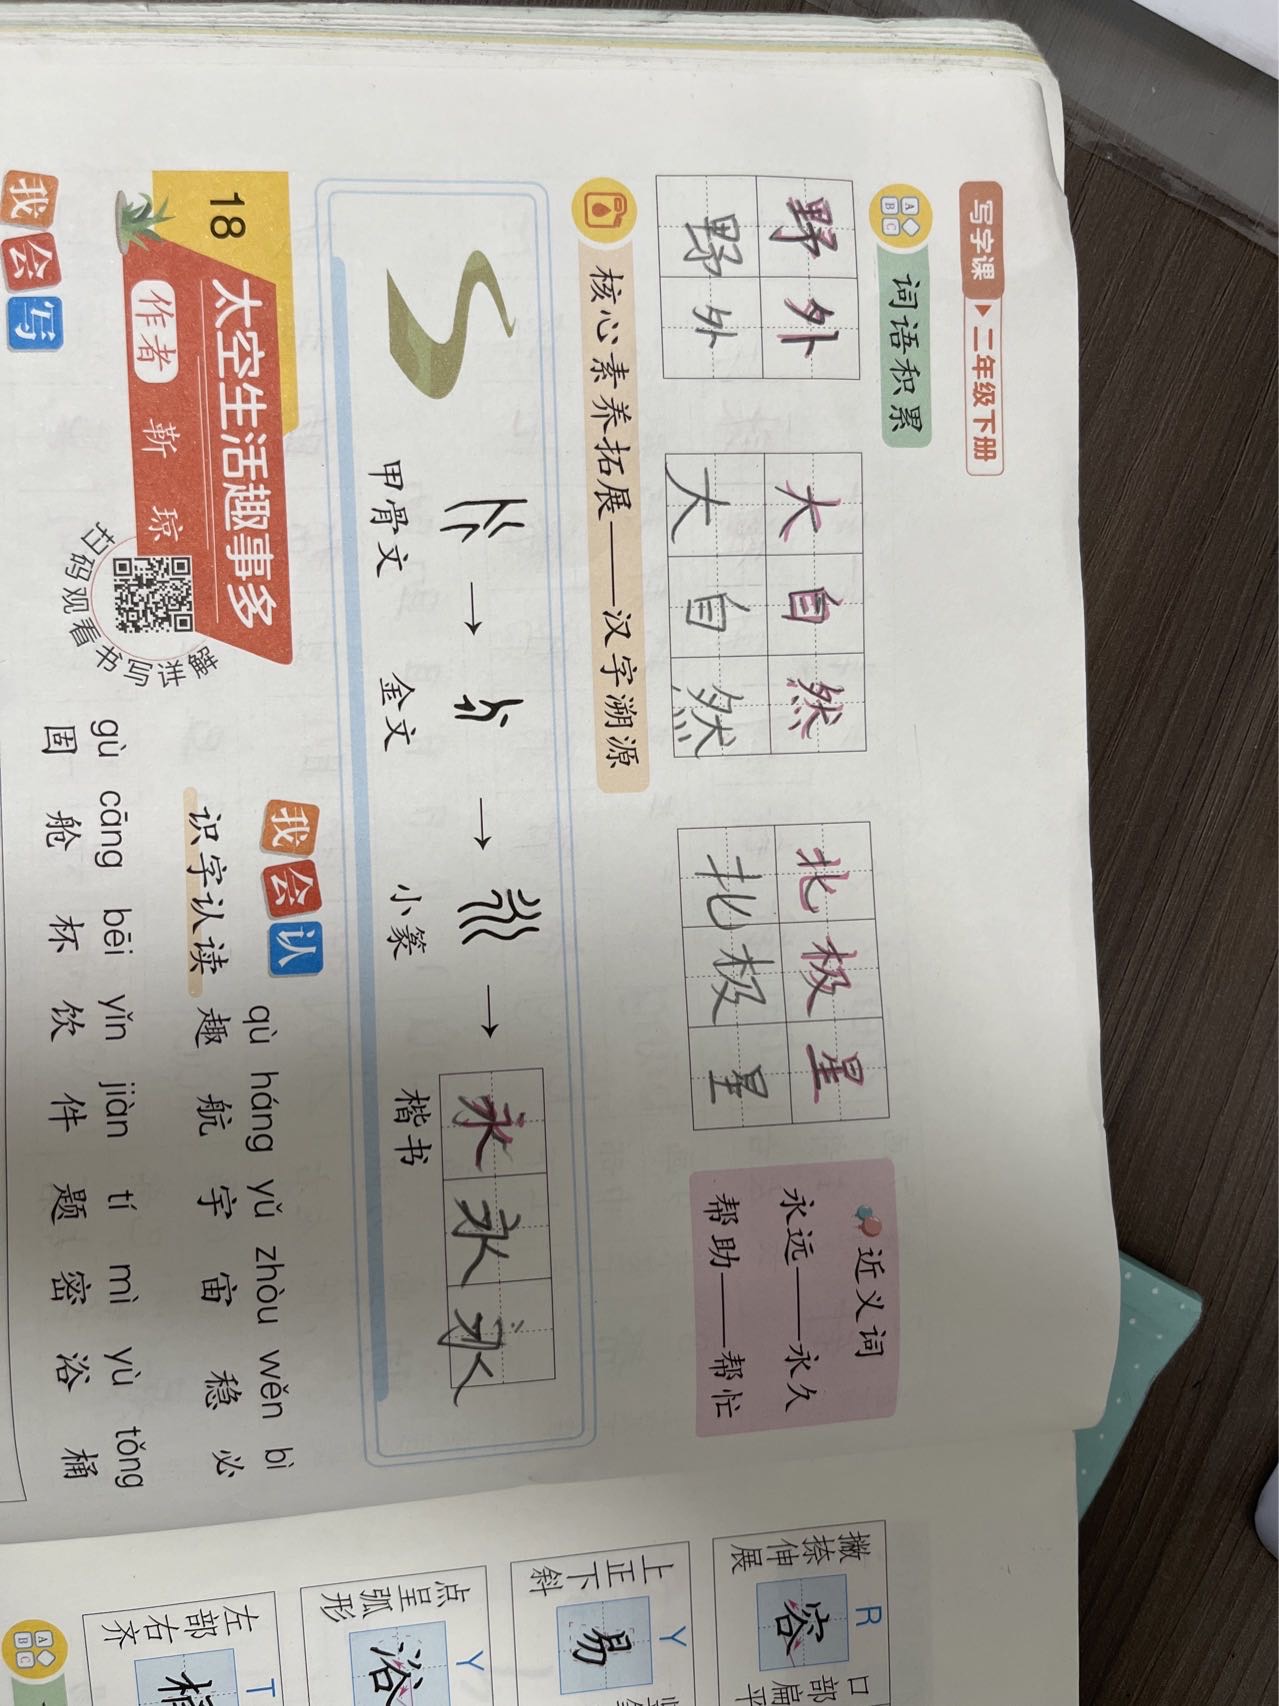 写字课 二年级下册
词语积累
野外 大自然 北极星
野外 大自然 北极星
近义词
永远——永久
帮助——帮忙
核心素养拓展——汉字溯源
永永永
甲骨文 金文 小篆 楷书
18 太空生活趣事多
作者 靳琼
扫码观看书写讲解
我会认
识字认读
qù háng yǔ zhòu wěn bì
趣 航 宇 宙 稳 必
gù cāng bēi yǐn jiàn tí mì yù tǒng
固 舱 杯 饮 件 题 密 浴 桶
我会写
R
撇捺伸展
容
口部扁平
Y
上正下斜
易
Y
点呈弧形
浴
T
左部右齐
桶